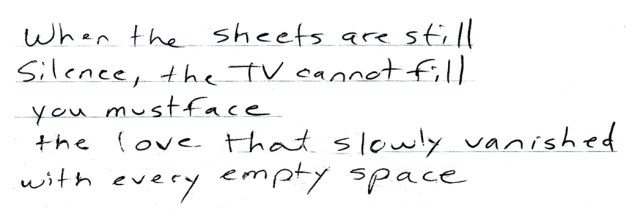 When the sheets are still
Silence, the TV cannot fill
you must face
the love that slowly vanished
with every empty space